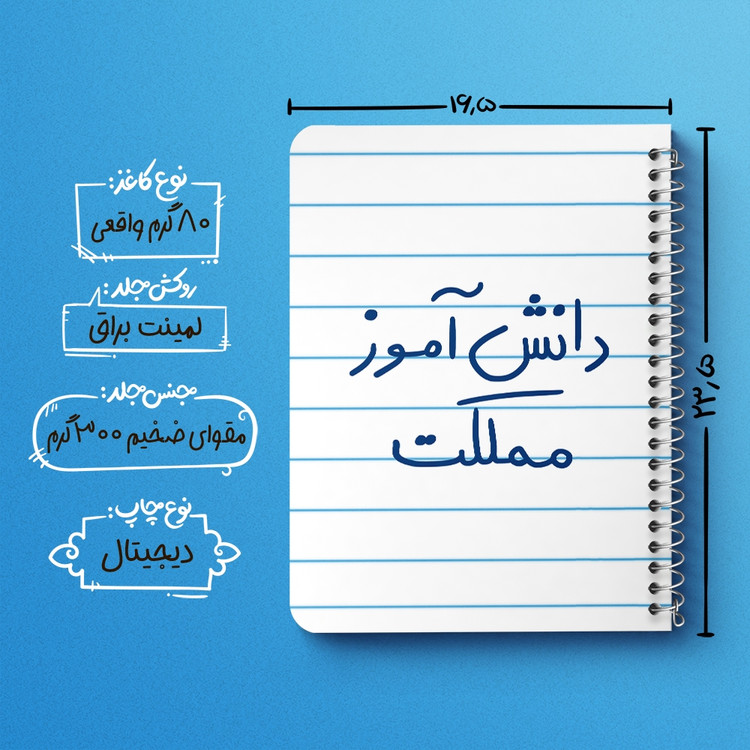 ۱۶٫۵
نوع کاغذ:
۸۰ گرم واقعی
روکش مجلد:
لمینت براق
مجنس مجلد:
مقوای ضخیم ۳۰۰ گرم
نوع چاپ:
دیجیتال
دانش آموز
مملکت
۲۳٫۵